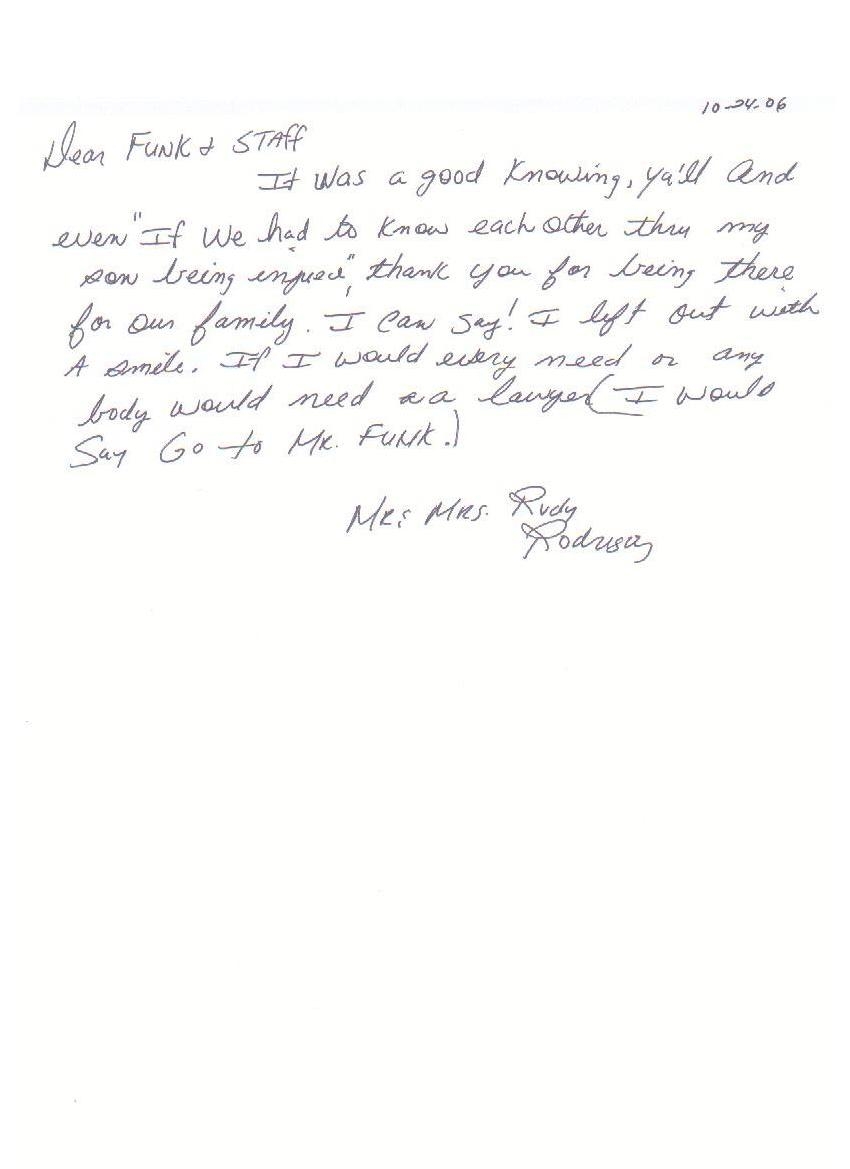 10-24-06
Dear FUNK & STAff
It Was a good Knowing, ya'll And
even "If We had to Know each other thru my
son being injured", thank you for being there
for our family. I Can Say! I left out with
A smile. If I would every need or any
body would need a a lawyer (I would
Say Go to MR. FUNK.)
MR & MRS. Rudy